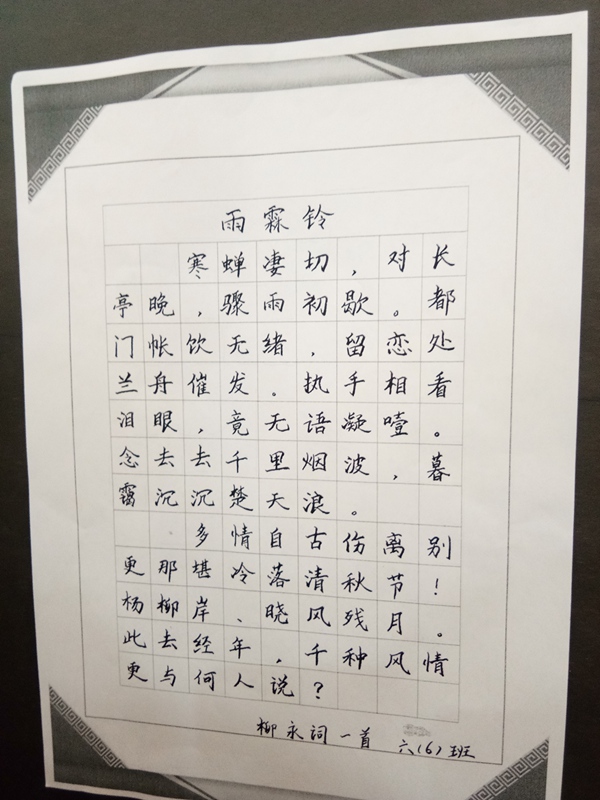 雨霖铃
寒蝉凄切，对长
亭晚，骤雨初歇。都
门帐饮无绪，留恋处
兰舟催发。执手相看
泪眼，竟无语凝噎。
念去去千里烟波，暮
霭沉沉楚天浪。
多情自古伤离别
更那堪冷落清秋节！
杨柳岸、晓风残月。
此去经年，千种风情
更与何人说？
柳永词一首 六(6)班